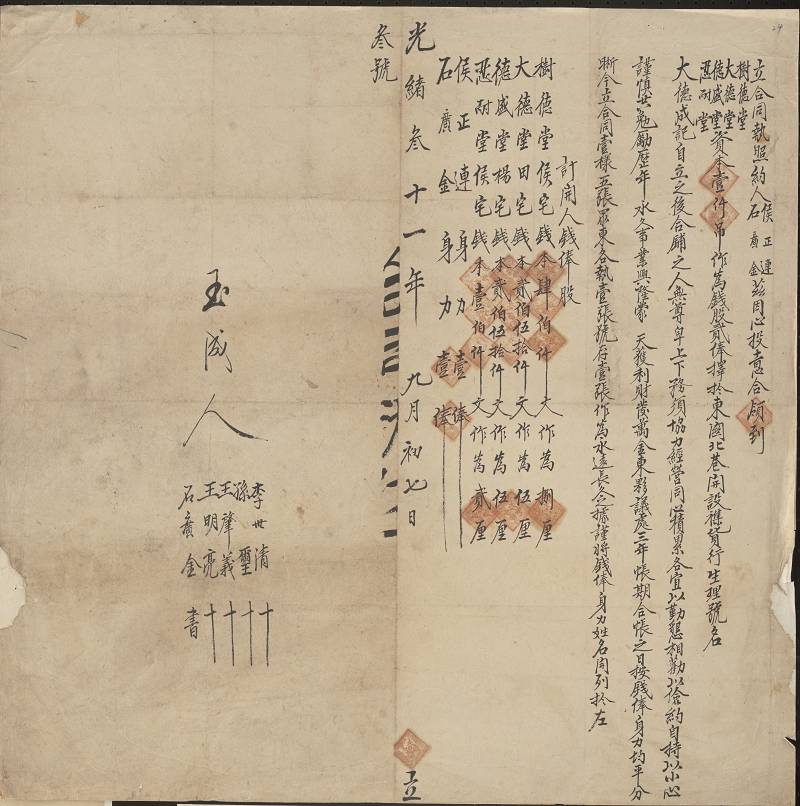 立合同執照約人侯正連
石廣金茲因心投意合領到
樹德堂
大德堂
德盛堂
忍耐堂資本壹仟吊作為錢股貳俸擇於東關北巷開設襍貨行生理號名
大德成記自立之後合鋪之人無尊卑上下務須協力經營同心積累各宜以勤懇相勸以儉約自持以小心
謹慎共勉勵歷年永久事業興隆蒙天獲利財發萬金東夥議處三年帳期合帳之日按錢俸身力均平分
晰今立合同壹樣五張眾東各執壹張號存壹張作為永遠長久之據謹將錢俸身力姓名開列於左
計開人錢俸股
樹德堂侯宅錢本肆伯仟文作為捌厘
大德堂田宅錢本貳伯伍拾仟文作為伍厘
德盛堂楊宅錢本貳伯伍拾仟文作為伍厘
忍耐堂侯宅錢本壹伯仟文作為貳厘
侯正連身力壹俸
石廣金身力壹俸
光緒叁十一年九月初七日立
叁號
玉成人
李世清十
孫璽十
王肇義十
王明亮十
石廣金書